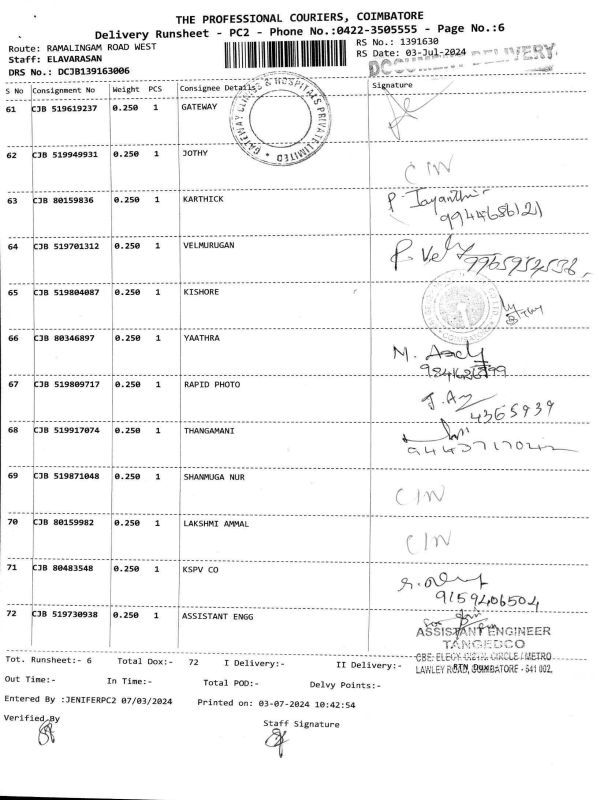 THE PROFESSIONAL COURIERS, COIMBATORE
Delivery Runsheet - PC2 - Phone No.:0422-3505555 - Page No.:6
Route: RAMALINGAM ROAD WEST RS No.: 1391630
Staff: ELAVARASAN RS Date: 03-Jul-2024
DOCUMENT DELIVERY
DRS No.: DCJB139163006
S No Consignment No Weight PCS Consignee Details Signature
61 CJB 519619237 0.250 1 GATEWAY
GATEWAY CLINICS & HOSPITALS PRIVATE LIMITED
62 CJB 519949931 0.250 1 JOTHY CIN
63 CJB 80159836 0.250 1 KARTHICK P. Jayanthi
9944686121
64 CJB 519701312 0.250 1 VELMURUGAN P. Vel
65 CJB 519804087 0.250 1 KISHORE
66 CJB 80346897 0.250 1 YAATHRA M.
67 CJB 519809717 0.250 1 RAPID PHOTO
4365939
68 CJB 519917074 0.250 1 THANGAMANI
69 CJB 519871048 0.250 1 SHANMUGA NUR CIN
70 CJB 80159982 0.250 1 LAKSHMI AMMAL CIN
71 CJB 80483548 0.250 1 KSPV CO
9159406504
72 CJB 519730938 0.250 1 ASSISTANT ENGG
ASSISTANT ENGINEER
TANGEDCO
CBE. ELECY. CIRCLE / METRO
Tot. Runsheet:- 6 Total Dox:- 72 I Delivery:- II Delivery:- RTN Dox:-
LAWLEY ROAD, COIMBATORE - 641 002.
Out Time:- In Time:- Total POD:- Delvy Points:-
Entered By :JENIFERPC2 07/03/2024 Printed on: 03-07-2024 10:42:54
Verified By Staff Signature